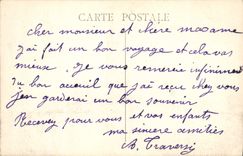 CARTE POSTALE
cher monsieur et chere madame
j'ai fait un bon voyage et cela vas
mieux, je vous remercie infiniment
du bon accueil que j'ai reçu chez vous
j'en garderai un bon souvenir
Recevez pour vous et vos enfants
ma sincere amitiés
B. Traversy